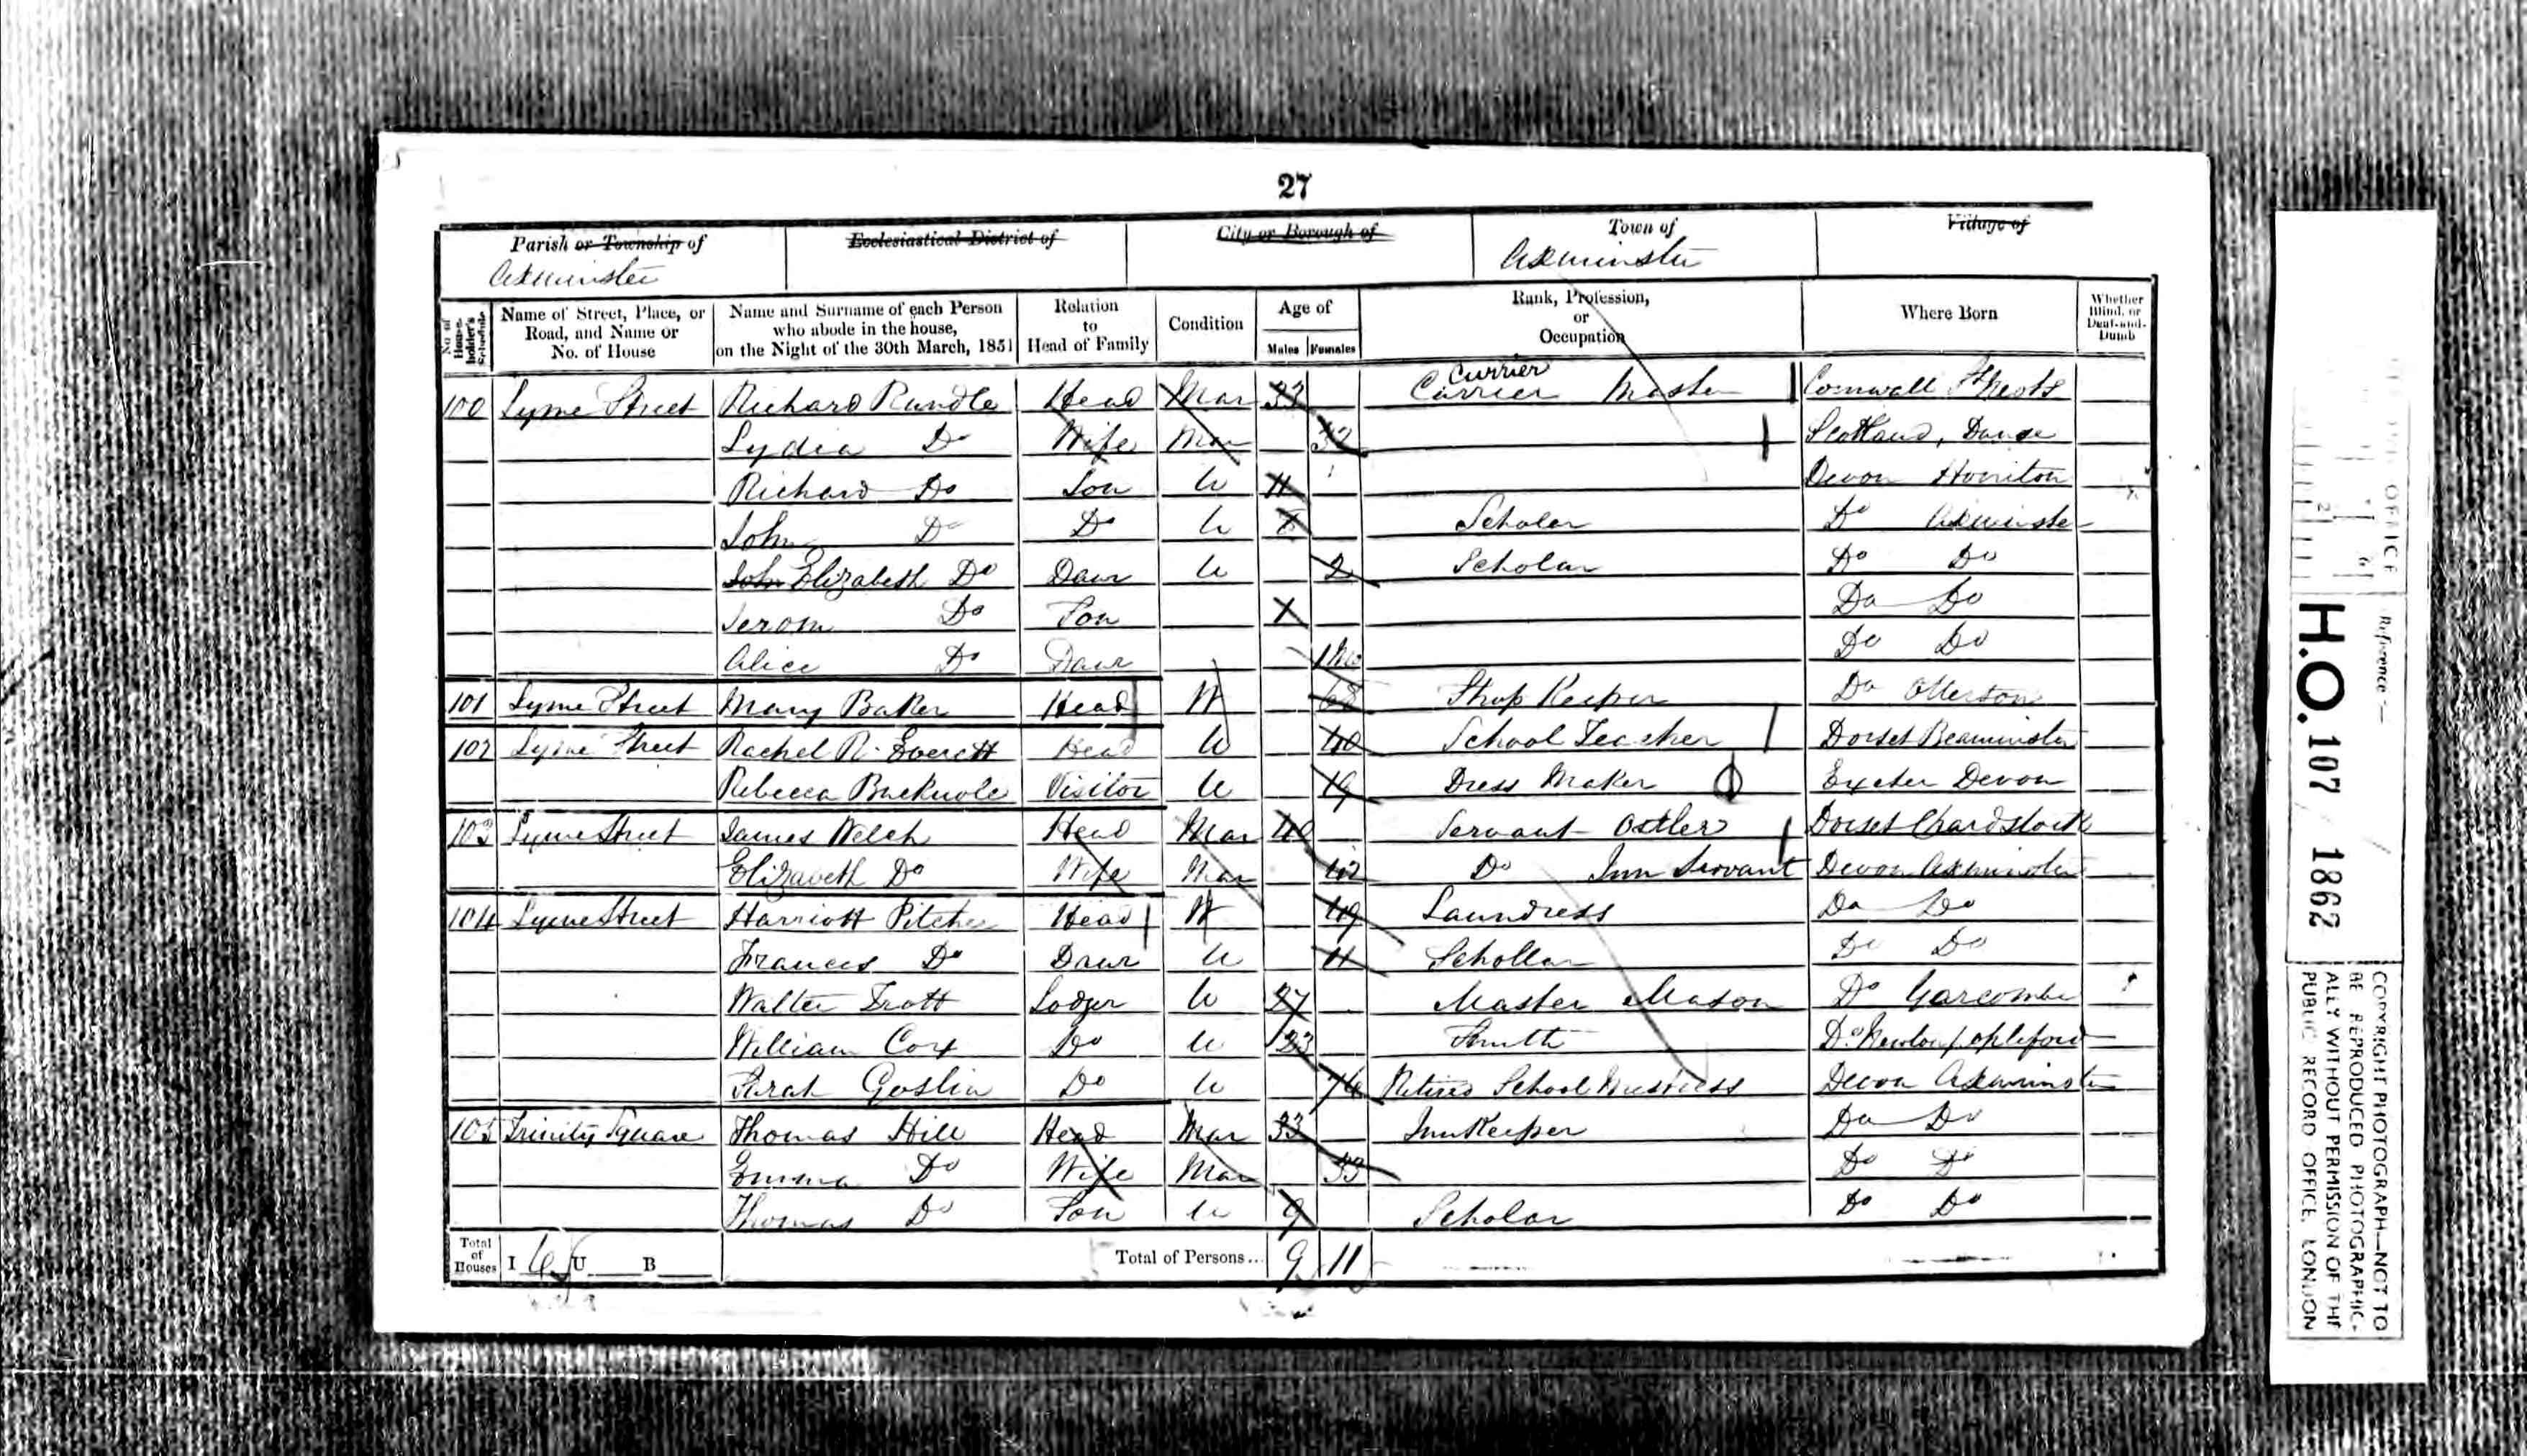 27
Parish or Township of Ecclesiastical District of City or Borough of Town of Village of
Axminster Axminster
No. of House-holder's Schedule Name of Street, Place, or Road, and Name or No. of House Name and Surname of each Person who abode in the house, on the Night of the 30th March, 1851 Relation to Head of Family Condition Age of Males Females Rank, Profession, or Occupation Where Born Whether Blind, or Deaf-and-Dumb
Currier
100 Lyme Street Richard Rundle Head Mar 33 Carrier Master Cornwall St Neots
Lydia Do Wife Mar 32 Scotland,
Richard Do Son U 11 Devon Honiton
John Do Do U Scholar Do Axminster
John Elizabeth Do Daur U 2 Scholar Do Do
Jerom Do Son Do Do
Alice Do Daur 1 Mo Do Do
101 Lyme Street Mary Baker Head W 68 Shop Keeper Do Otterton
102 Lyme Street Rachel R. Everett Head U 40 School Teacher Dorset Beaminster
Rebecca Bucknole Visitor U 19 Dress Maker Exeter Devon
103 Lyme Street James Welch Head Mar 40 Servant Ostler Dorset Chardstock
Elizabeth Do Wife Mar 42 Do Inn Servant Devon Axminster
104 Lyme Street Harriott Pitcher Head W 49 Laundress Do Do
Frances Do Daur U 11 Schollar Do Do
Walter Trott Lodger U 27 Master Mason Do Yarcombe
William Cox Do U 23 Smith Do Newton Popleford
Sarah Goslin Do U 76 Retired School Mistress Devon Axminster
105 Trinity Square Thomas Hill Head Mar 33 InnKeeper Do Do
Emma Do Wife Mar 33 Do Do
Thomas Do Son U 9 Scholar Do Do
Total of Houses I 6 U B Total of Persons... 9 11
OFFICE
Reference:—
H.O. 107 / 1862
COPYRIGHT PHOTOGRAPH—NOT TO
BE REPRODUCED PHOTOGRAPHIC-
ALLY WITHOUT PERMISSION OF THE
PUBLIC RECORD OFFICE, LONDON